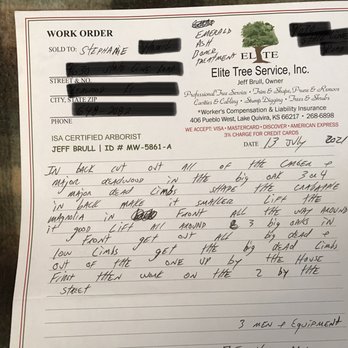 WORK ORDER
EMERALD
ASH
BORER
TREATMENT
SOLD TO: STEPHANIE
STREET & NO.
CITY, STATE ZIP
PHONE
ELITE
Elite Tree Service, Inc.
Jeff Brull, Owner
Professional Tree Service • Trim & Shape, Prune & Remove
Cavities & Cabling • Stump Digging • Trees & Shrubs
*Worker's Compensation & Liability Insurance
406 Pueblo West, Lake Quivira, KS 66217 • 268-6898
WE ACCEPT: VISA • MASTERCARD • DISCOVER • AMERICAN EXPRESS
3% CHARGE FOR CREDIT CARDS
ISA CERTIFIED ARBORIST
JEFF BRULL | ID # MW-5861-A
DATE 13 JULY 2021
IN BACK CUT OUT ALL OF THE LARGER &
MAJOR DEADWOOD IN THE BIG OAK 3 OR 4
MAJOR DEAD LIMBS SHAPE THE CRABAPPLE
IN BACK MAKE IT SMALLER LIFT THE
MAGNOLIA IN FRONT ALL THE WAY AROUND
IT GOOD LIFT ALL AROUND 3 BIG OAKS IN
FRONT GET OUT ALL BIG DEAD &
LOW LIMBS GET THE BIG DEAD LIMBS
OUT OF THE ONE UP BY THE HOUSE
FIRST THEN WORK ON THE 2 BY THE
STREET
3 MEN & EQUIPMENT